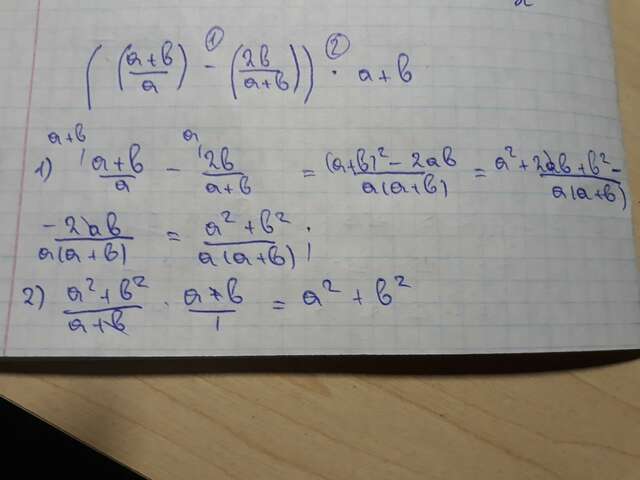 ① ②
((a+b)/a) - (2b/(a+b))) · a+b
1) a+b\ (a+b)/a - a\ 2b/(a+b) = ((a+b)² - 2ab)/(a(a+b)) = (a² + 2ab + b² -)/(a(a+b))
(-2ab)/(a(a+b)) = (a² + b²)/(a(a+b));
2) (a² + b²)/(a+b) · (a+b)/1 = a² + b²